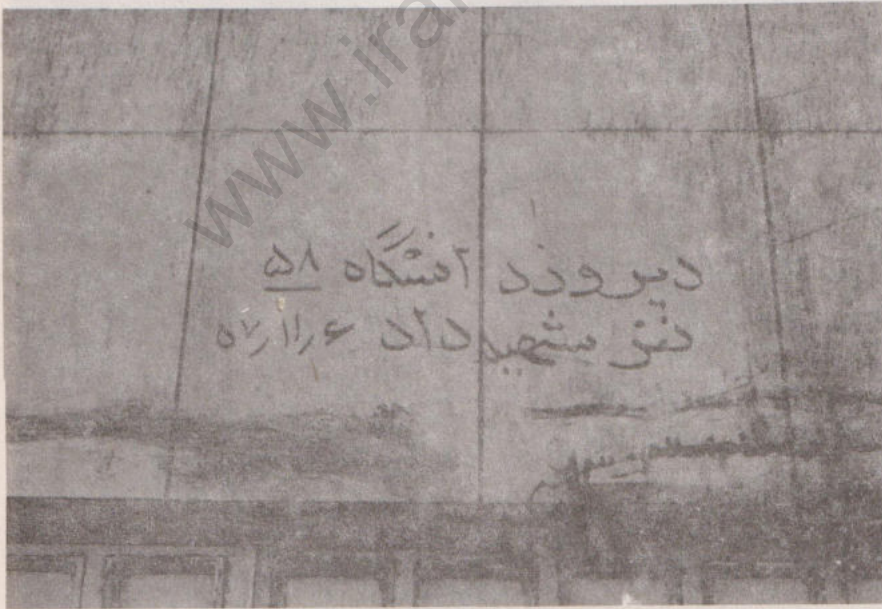 www.iran
دیروز دانشگاه ۵۸
نفر شهید داد ۵۷/۱۱/۶